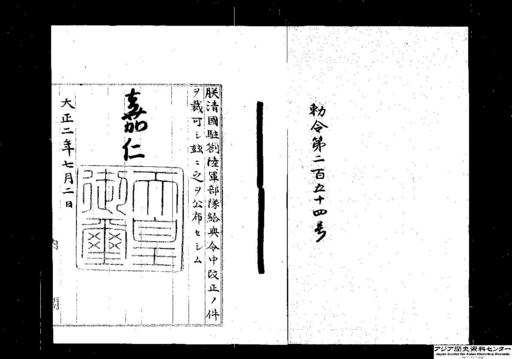 勅令第二百五十四号
朕清國駐劄陸軍部隊給與令中改正ノ件
ヲ裁可シ玆ニ之ヲ公布セシム
嘉仁
天皇御璽
大正二年七月二日
アジア歴史資料センター
Japan Center for Asian Historical Records